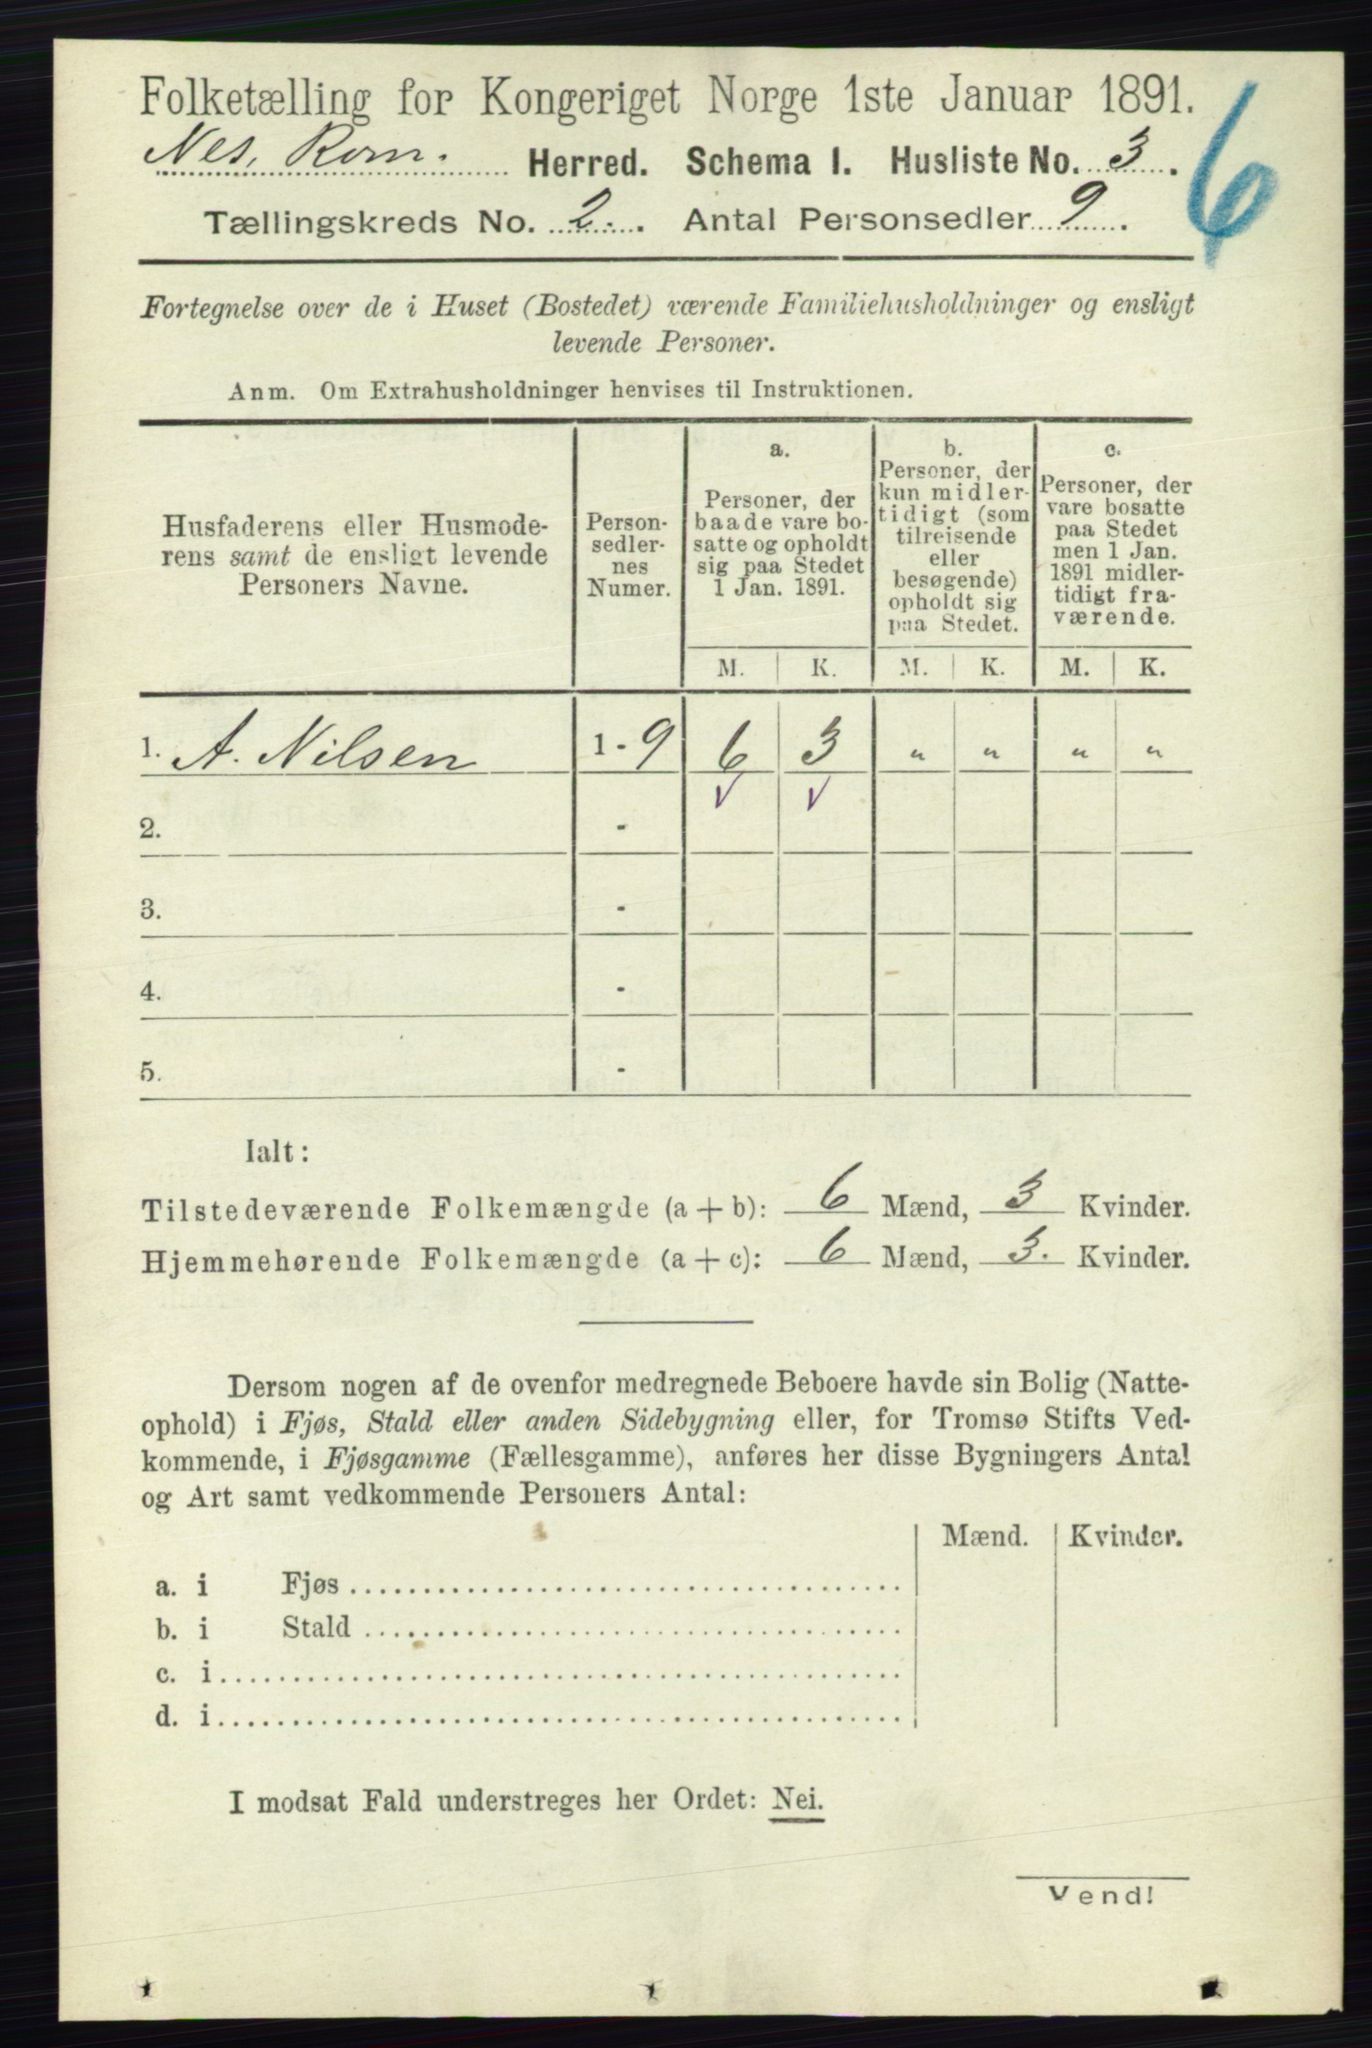 Folketælling for Kongeriget Norge 1ste Januar 1891.
6
Nes, Rom. Herred. Schema I. Husliste No. 3.
Tællingskreds No. 2. Antal Personsedler 9.
Fortegnelse over de i Huset (Bostedet) værende Familiehusholdninger og ensligt
levende Personer.
Anm. Om Extrahusholdninger henvises til Instruktionen.
Husfaderens eller Husmode-
rens samt de ensligt levende
Personers Navne.
Person-
sedler-
nes
Numer.
a.
Personer, der
baade vare bo-
satte og opholdt
sig paa Stedet
1 Jan. 1891.
b.
Personer, der
kun midler-
tidigt (som
tilreisende
eller
besøgende)
opholdt sig
paa Stedet.
c.
Personer, der
vare bosatte
paa Stedet
men 1 Jan.
1891 midler-
tidigt fra-
værende.
M. K. M. K. M. K.
1. A. Nilsen 1 - 9 6 3 " " " "
√ √
2. -
3. -
4. -
5. -
Ialt:
Tilstedeværende Folkemængde (a + b): 6 Mænd, 3 Kvinder.
Hjemmehørende Folkemængde (a + c): 6 Mænd, 3. Kvinder.
Dersom nogen af de ovenfor medregnede Beboere havde sin Bolig (Natte-
ophold) i Fjøs, Stald eller anden Sidebygning eller, for Tromsø Stifts Ved-
kommende, i Fjøsgamme (Fællesgamme), anføres her disse Bygningers Antal
og Art samt vedkommende Personers Antal:
Mænd. Kvinder.
a. i Fjøs
b. i Stald
c. i
d. i
I modsat Fald understreges her Ordet: Nei.
Vend!